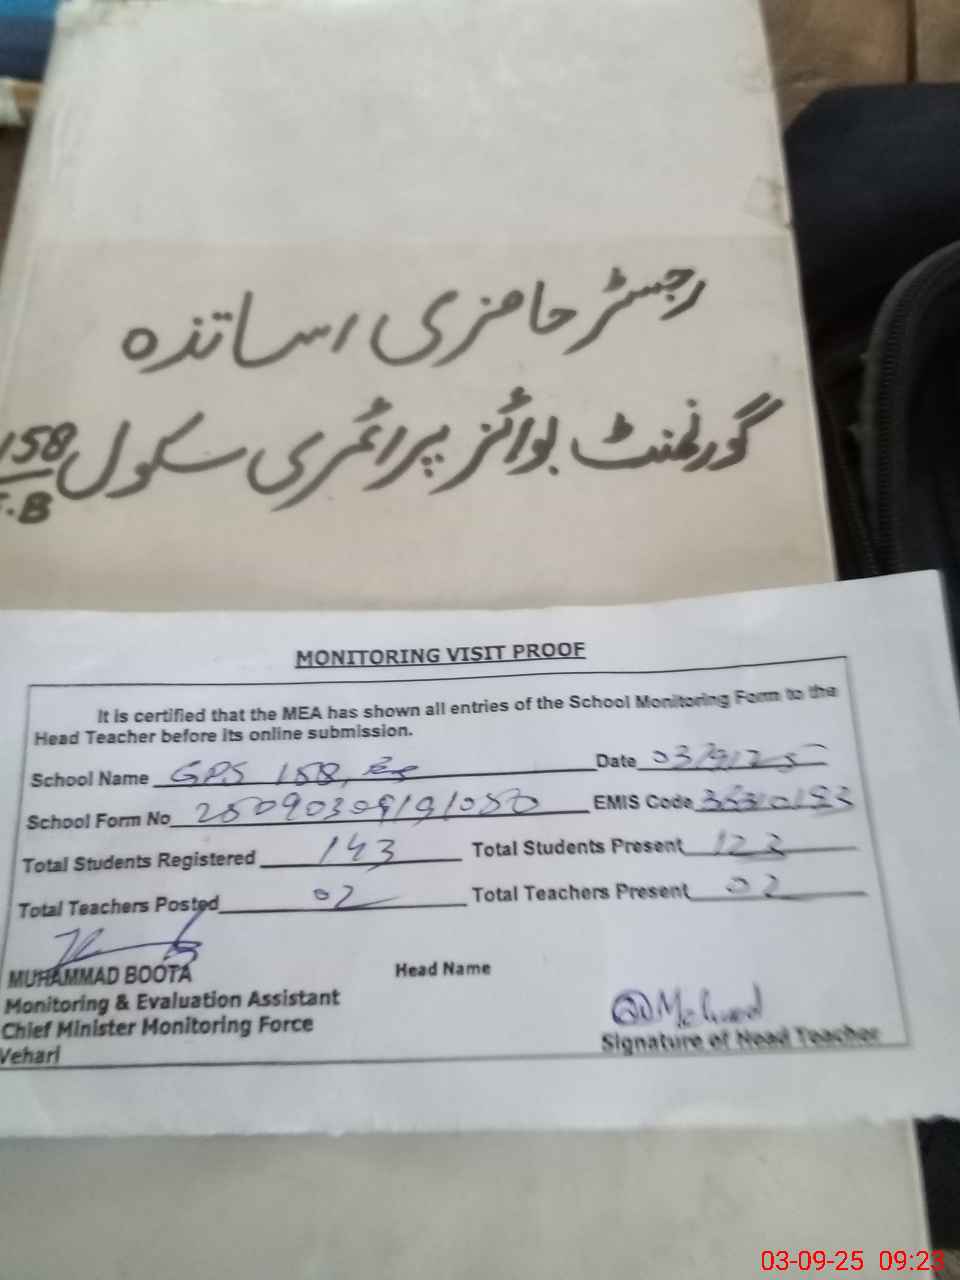 رجسٹر حاضری اساتذہ
گورنمنٹ بوائز پرائمری سکول 158
E.B
MONITORING VISIT PROOF
It is certified that the MEA has shown all entries of the School Monitoring Form to the
Head Teacher before its online submission.
School Name GPS 158, EB Date 03/9/25
School Form No EMIS Code
Total Students Registered 143 Total Students Present 123
Total Teachers Posted 02 Total Teachers Present 02
MUHAMMAD BOOTA Head Name
Monitoring & Evaluation Assistant
Chief Minister Monitoring Force
Vehari
Signature of Head Teacher
03-09-25 09:23